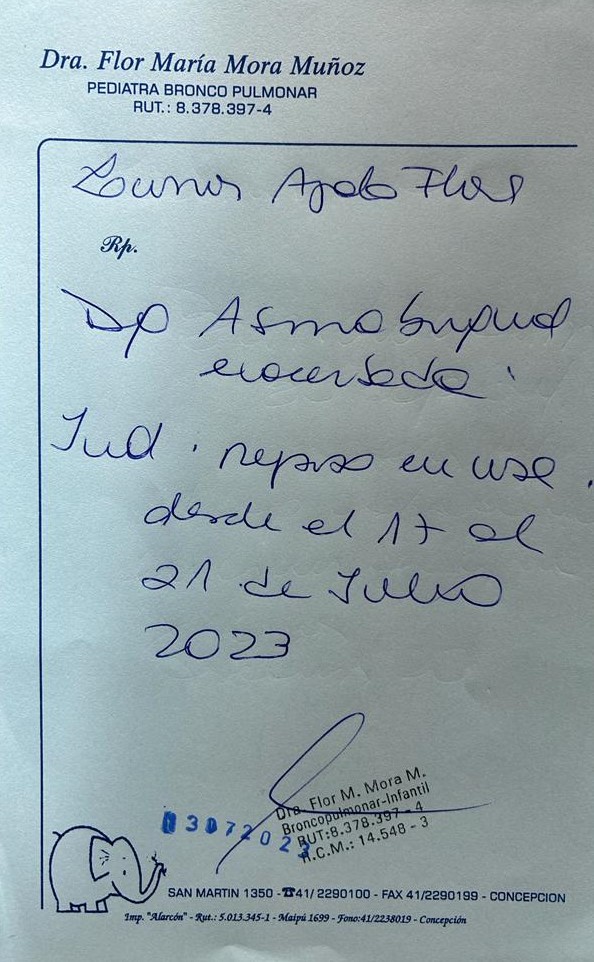 Dra. Flor María Mora Muñoz
PEDIATRA BRONCO PULMONAR
RUT.: 8.378.397-4
Flores
Rp.
Dp Asma
Ind. reposo en
desde el 17 al
21 de Julio
2023
Dra. Flor M. Mora M.
Broncopulmonar-Infantil
RUT:8.378.397 - 4
R.C.M.: 14.548 - 3
SAN MARTIN 1350 - ☎41/ 2290100 - FAX 41/2290199 - CONCEPCION
Imp. "Alarcón" - Rut.: 5.013.345-1 - Maipú 1699 - Fono:41/2238019 - Concepción